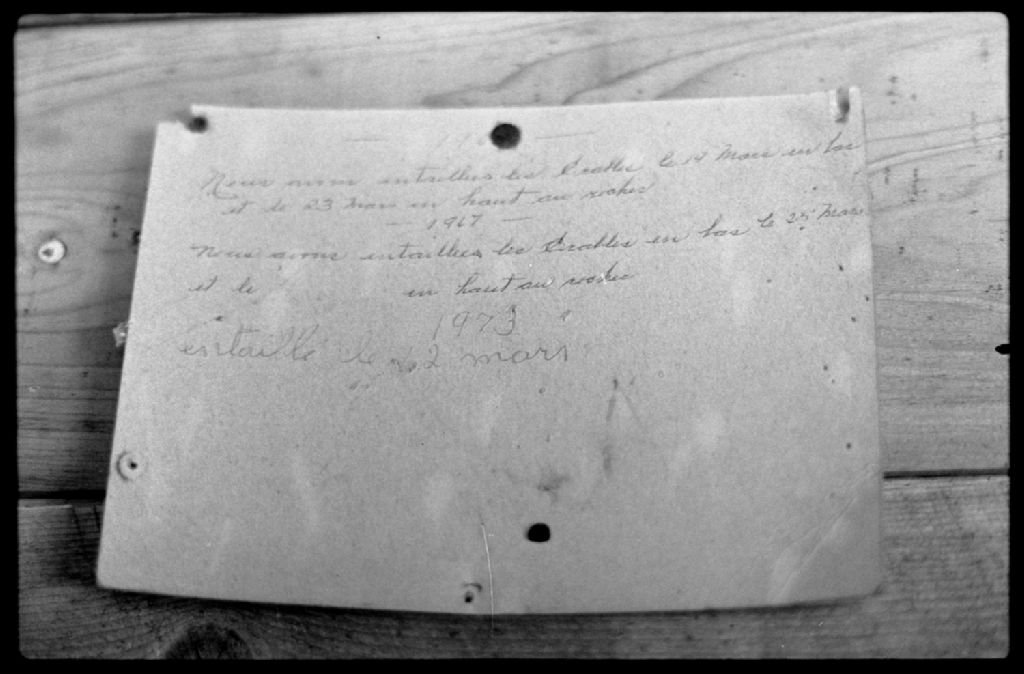 Nous avons entaillés les Érables le 19 Mars en bas
et le 23 Mars en haut au rocher
— 1967 —
Nous avons entaillées les Érables en bas le 25 Mars
et le en haut au rocher
1973
entaillé le 22 mars